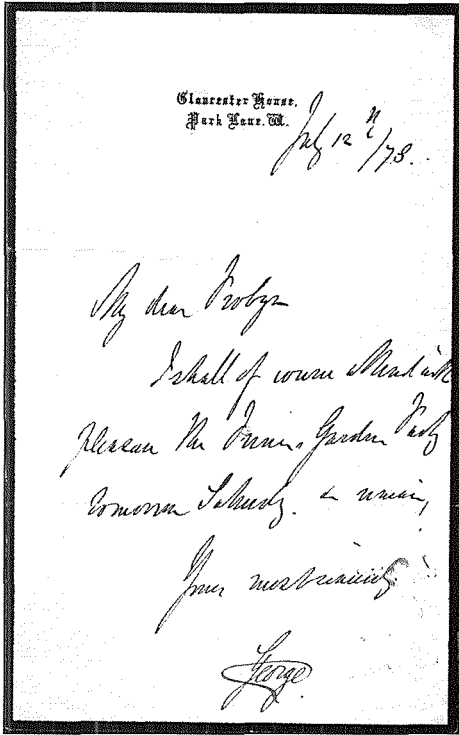 Gloucester House,
Park Lane. W.
July 12th/78.
My dear Probyn
I shall of course attend with
pleasure the Princes Garden Party
tomorrow Saturday. & remain,
Yours most sincerely
George